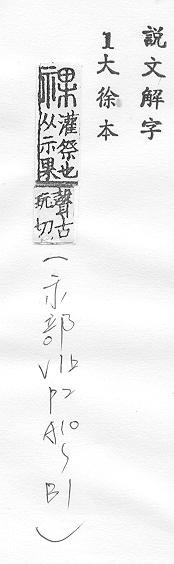 説文解字
1大徐本
祼灌祭也从示果聲古玩切(示部V1b P2 A10~B1)